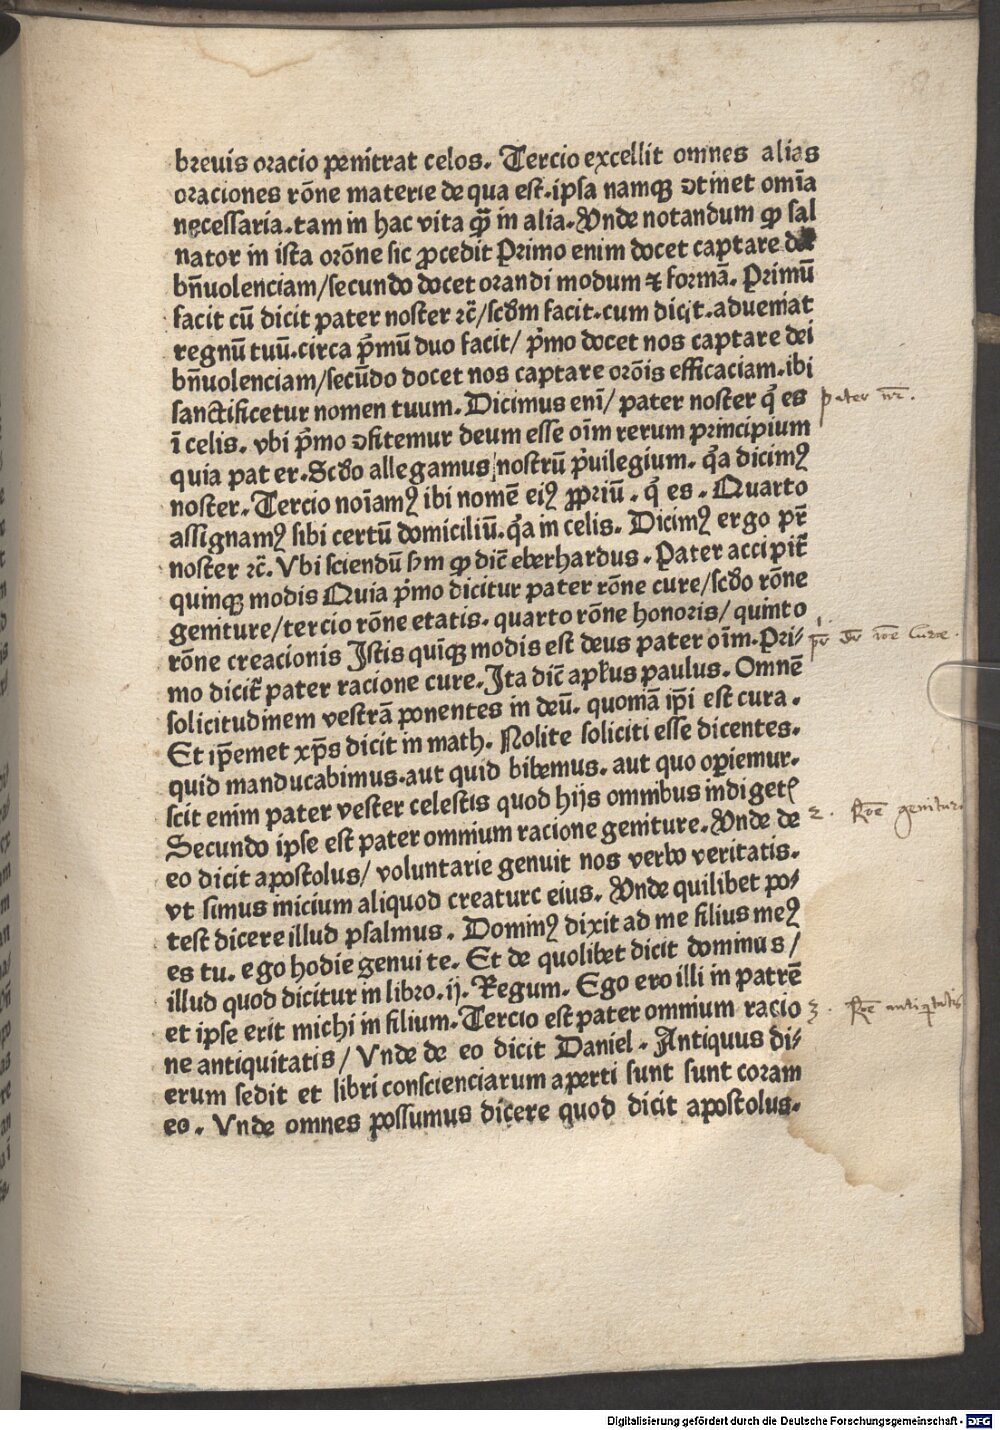 breuis oracio penitrat celos. Tercio excellit omnes alias
oraciones rōne materie de qua est. ipsa namqꝫ ↄtinet omīa
necessaria. tam in hac vita qꝫ̄ in alia. Vnde notandum ꝙ sal
nator in ista orōne sic ꝓcedit Primo enim docet captare dei
bn̄uolenciam/ secundo docet orandi modum ⁊ formā. Primū
facit cū dicit pater noster ⁊c̄/ scd̄m facit. cum dicit. adueniat
regnū tuū. circa p̄mū duo facit/ p̄mo docet nos captare dei
bn̄uolenciam/ secūdo docet nos captare orōis efficaciam. ibi
sanctificetur nomen tuum. Dicimus enī/ pater noster q̄ es
ī celis. vbi p̄mo ↄfitemur deum esse oīm rerum principium
quia pat er. Scd̄o allegamus nostrū p̄uilegium. q̄a dicimꝰ
noster. Tercio noīamꝰ ibi nomē eiꝰ ꝓpriū. q̄ es. Quarto
assignamꝰ sibi certū domiciliū. q̄a in celis. Dicimꝰ ergo pr̄
noster ⁊c̄. Vbi sciendū s̄m ꝙ dic̄ eberhardus. Pater accipit̄
quinqꝫ modis Quia p̄mo dicitur pater rōne cure/ scd̄o rōne
geniture/ tercio rōne etatis. quarto rōne honoris/ quinto
rōne creacionis Istis quīqꝫ modis est deus pater oīm. Pri⸗
mo dicit̄ pater racione cure. Ita dic̄ apl̄us paulus. Omnē
solicitudinem vestrā ponentes in deū. quoniā ip̄i est cura.
Et ip̄emet xp̄s dicit in math. Nolite soliciti esse dicentes.
quid manducabimus. aut quid bibemus. aut quo operiemur.
scit enim pater vester celestis quod hijs omnibus indigetꝭ
Secundo ipse est pater omnium racione geniture. Vnde de
eo dicit apostolus/ voluntarie genuit nos verbo veritatis.
vt simus inicium aliquod creature eius. Vnde quilibet po⸗
test dicere illud psalmus. Dominꝰ dixit ad me filius meꝰ
es tu. ego hodie genui te. Et de quolibet dicit dominus/
illud quod dicitur in libro. ij. Regum. Ego ero illi in patrē
et ipse erit michi in filium. Tercio est pater omnium racio
ne antiquitatis/ Vnde de eo dicit Daniel. Antiquus di⸗
erum sedit et libri conscienciarum aperti sunt sunt coram
eo. Vnde omnes possumus dicere quod dicit apostolus.
pater nr̄.
rōe Cure.
2. Rōe genitur
3. Rōe antiq̄tatis
Digitalisierung gefördert durch die Deutsche Forschungsgemeinschaft - DFG